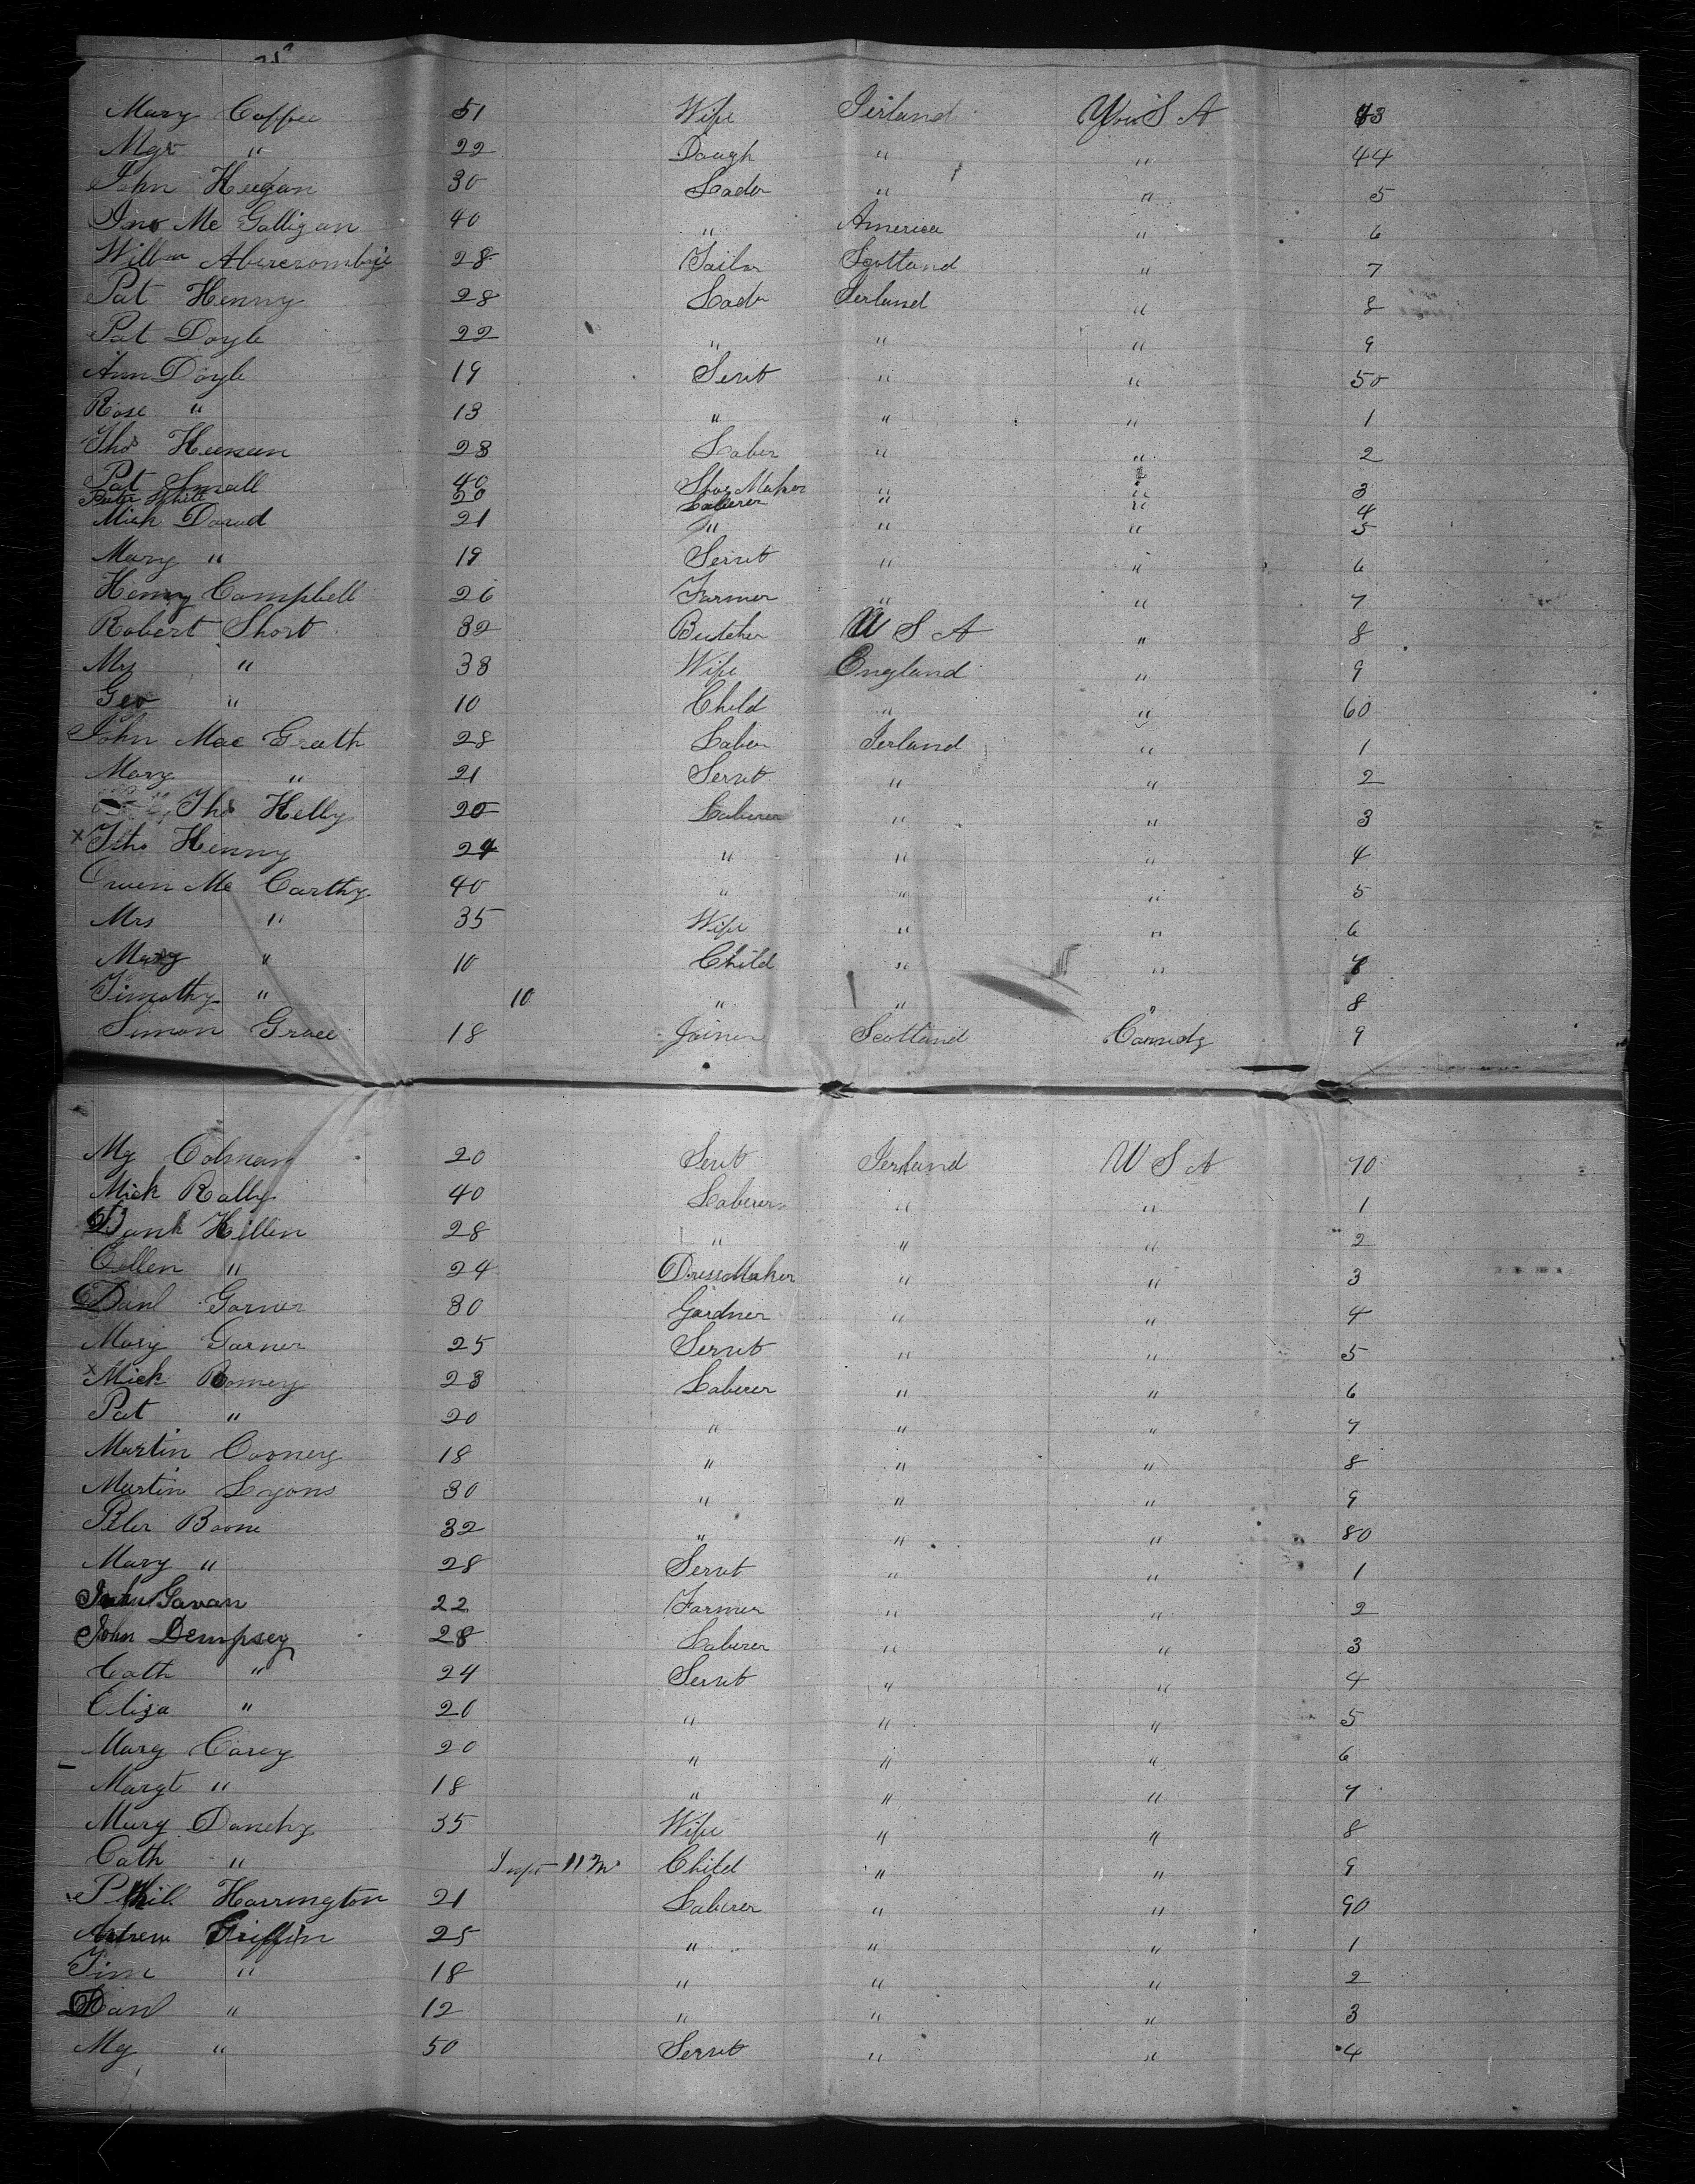 Mary Coffee 51 Wife Ierland U S A 43
Mgt " 22 Daugh " " 44
John Heegan 30 Labr " " 5
Jno Mc Galligan 40 " America " 6
Willm Abercrombie 28 Tailor Scotland " 7
Pat Henny 28 Labr Ierland " 8
Pat Doyle 22 " " " 9
Ann Doyle 19 Servt " " 50
Rose " 13 " " " 1
Thos Heenan 28 Laber " " 2
Pat Small 40 Shoe Maker " " 3
Peter White 20 Laberer " " 4
Mich Dowd 21 " " " 5
Mary " 19 Servt " " 6
Henry Campbell 26 Farmer " " 7
Robert Short 32 Butcher U S A " 8
Mrs " 38 Wife England " 9
Geo " 10 Child " " 60
John Mac Grath 28 Laber Ierland " 1
Mary " 21 Servt " " 2
Thos Kelly 20 Laberer " " 3
x Thos Henny 24 " " " 4
Owen Mc Carthy 40 " " " 5
Mrs " 35 Wife " " 6
Mary " 10 Child " " 7
Timothy " 10 " " " 8
Simon Grace 18 Joiner Scotland Cannidy 9
Mg Colman 20 Servt Ierland U S A 70
Mick Rally 40 Laberer " " 1
Dank Killen 28 " " " 2
Eellen " 24 Dress Maker " " 3
Danl Garner 30 Gardner " " 4
Mary Garner 25 Servt " " 5
x Mick Romery 28 Laberer " " 6
Pat " 20 " " " 7
Martin Cooney 18 " " " 8
Martin Lyons 30 " " " 9
Peter Boone 32 " " " 80
Mary " 28 Servt " " 1
John Gavan 22 Farmer " " 2
John Dempsey 28 Laberer " " 3
Cath " 24 Servt " " 4
Eliza " 20 " " " 5
Mary Carey 20 " " " 6
Margt " 18 " " " 7
Mary Danehy 35 Wife " " 8
Cath " Inft 11 m Child " " 9
Phil Harrington 21 Laberer " " 90
Andrew Griffin 25 " " " 1
Tim " 18 " " " 2
Danl " 12 " " " 3
Mg " 50 Servt " " 4